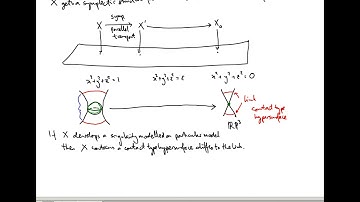 X gets a symplectic
X → X' → X₀
symp.
parallel
transport
x²+y²+z²=1 x²+y²+z²=ε x²+y²+z²=0
link
contact type
hypersurface
RP³
If X develops a singularity modelled on particular model
then X contains a contact type hypersurface diffeo to the link.